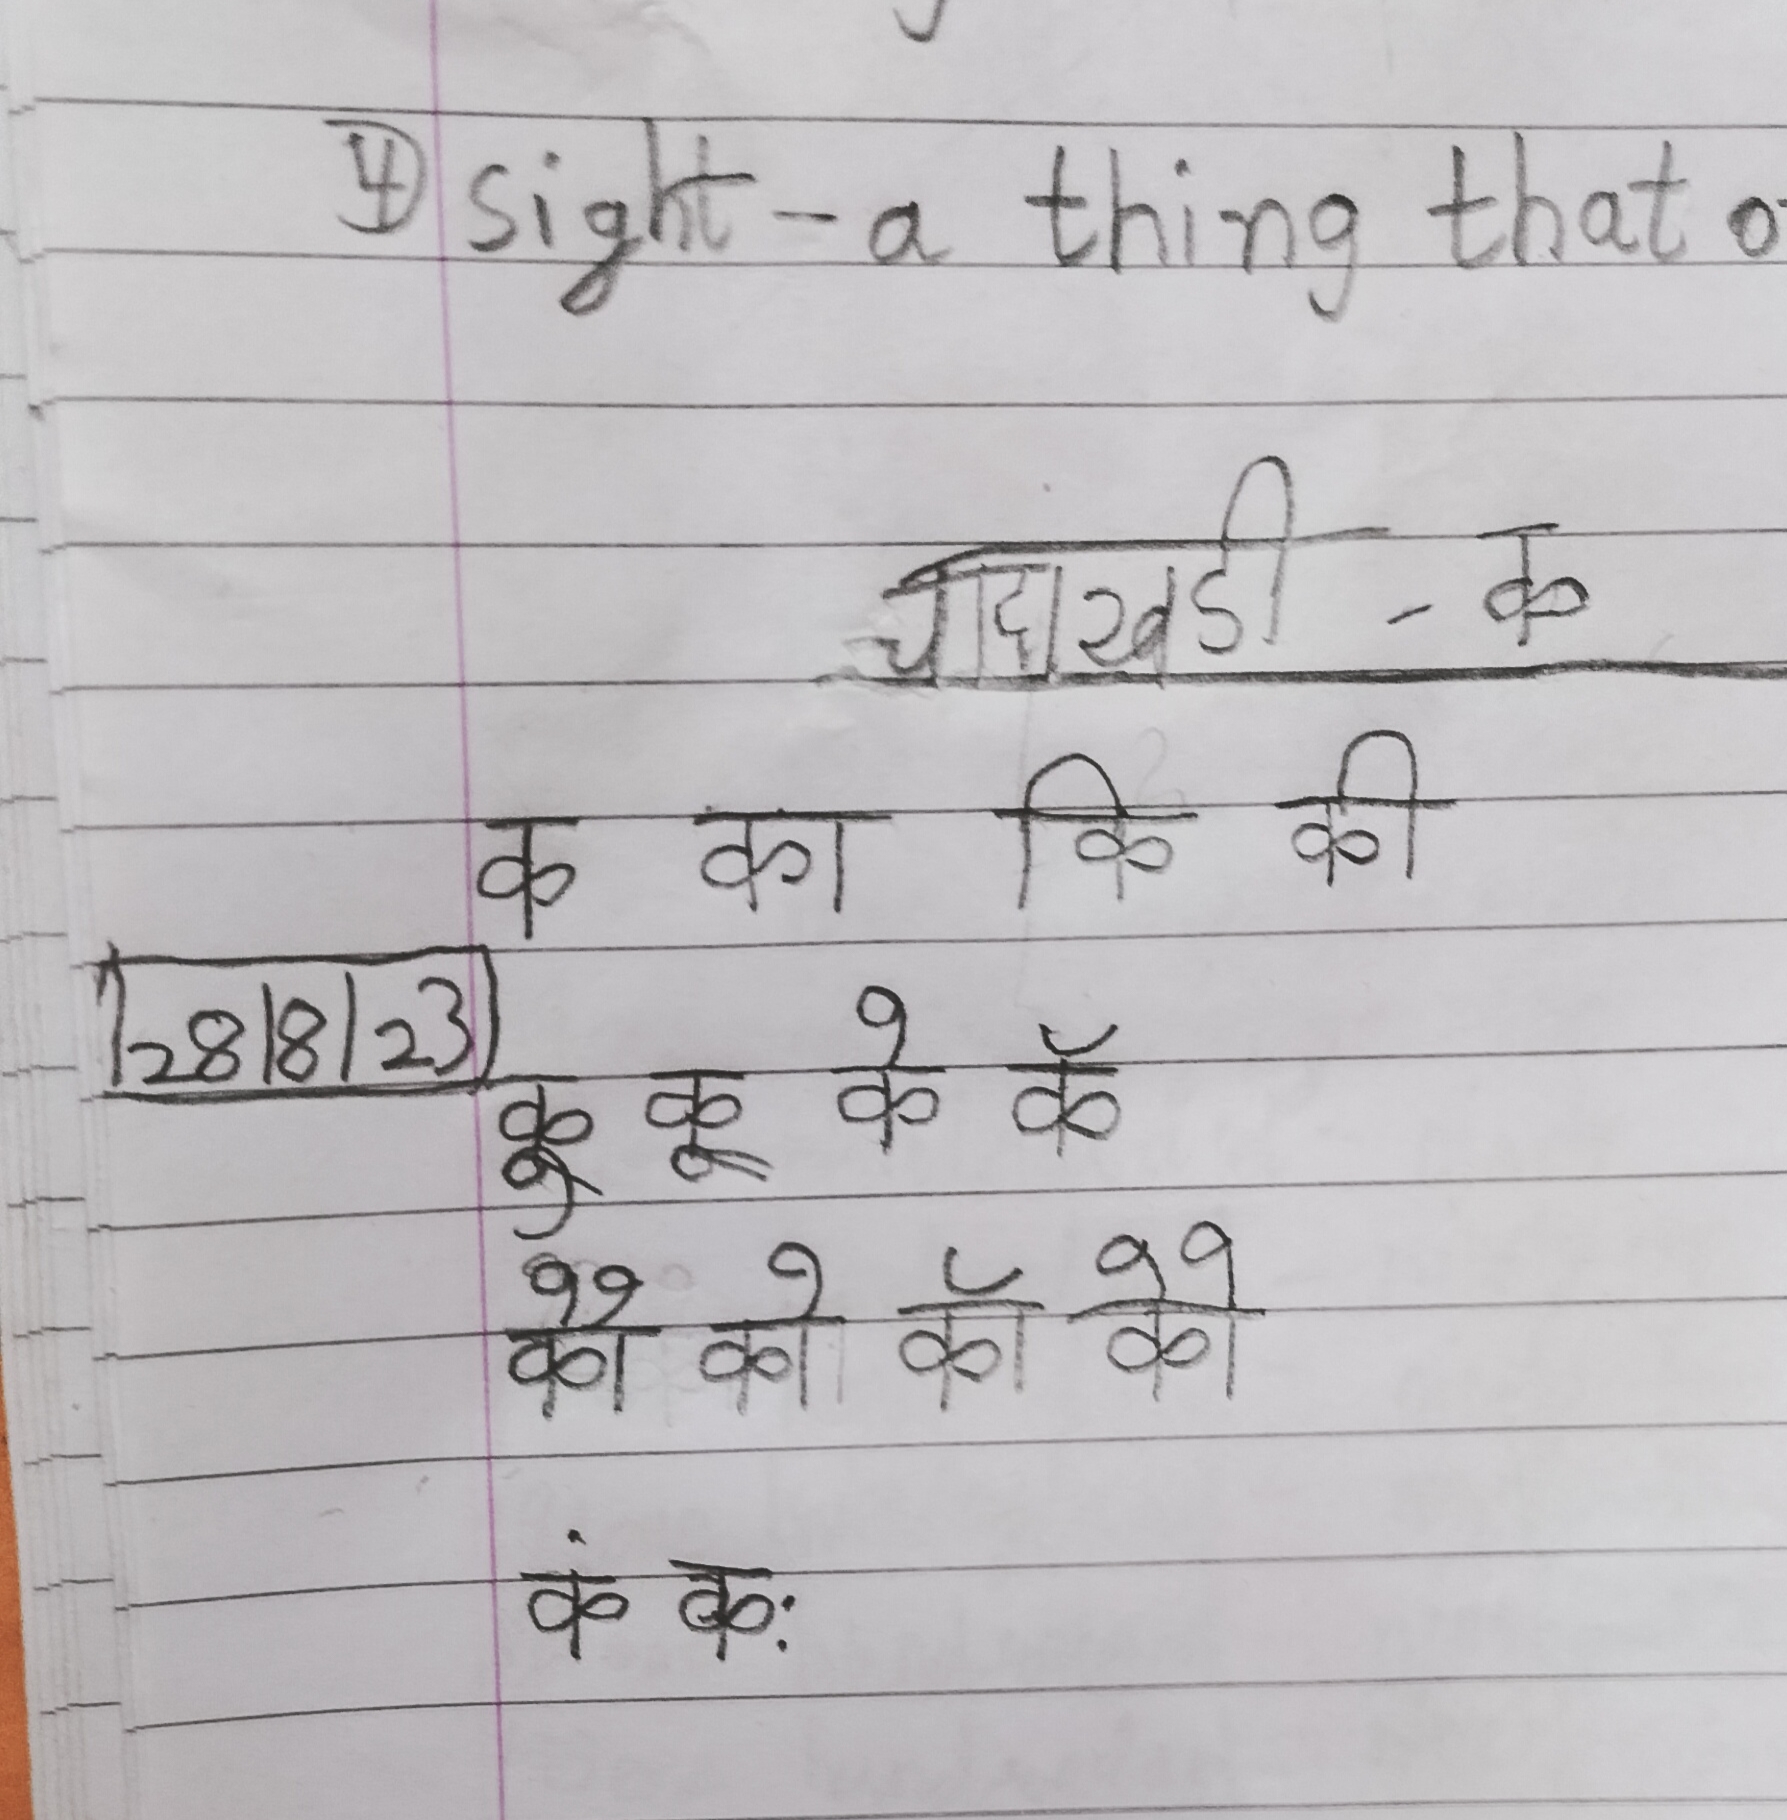 ④ sight - a thing that
चौदाखडी - क
क का कि की
28/8/23
कु कू के कॅ
कै को कॉ कौ
कं कः